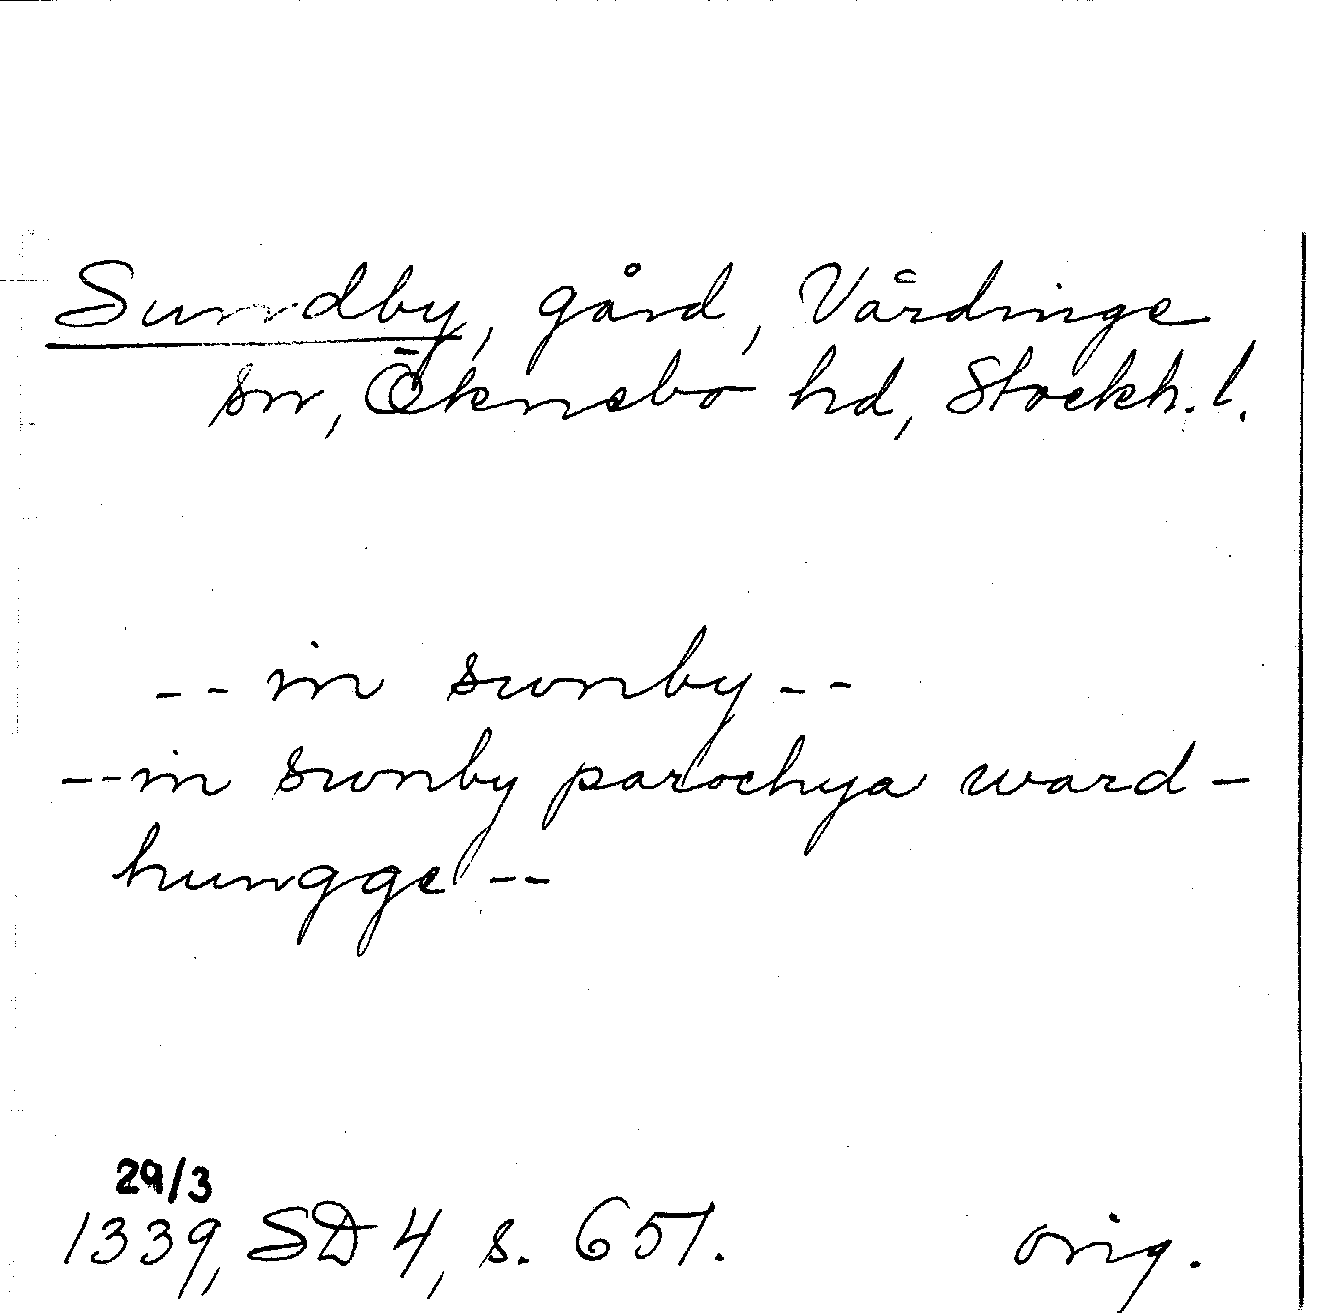 Sundby, gård, Vårdinge
sn, Öknebo hd, Stockh. l.
-- in sunby --
-- in sunby parochya ward-
hungge --
29/3
1339, SD 4, s. 651. orig.